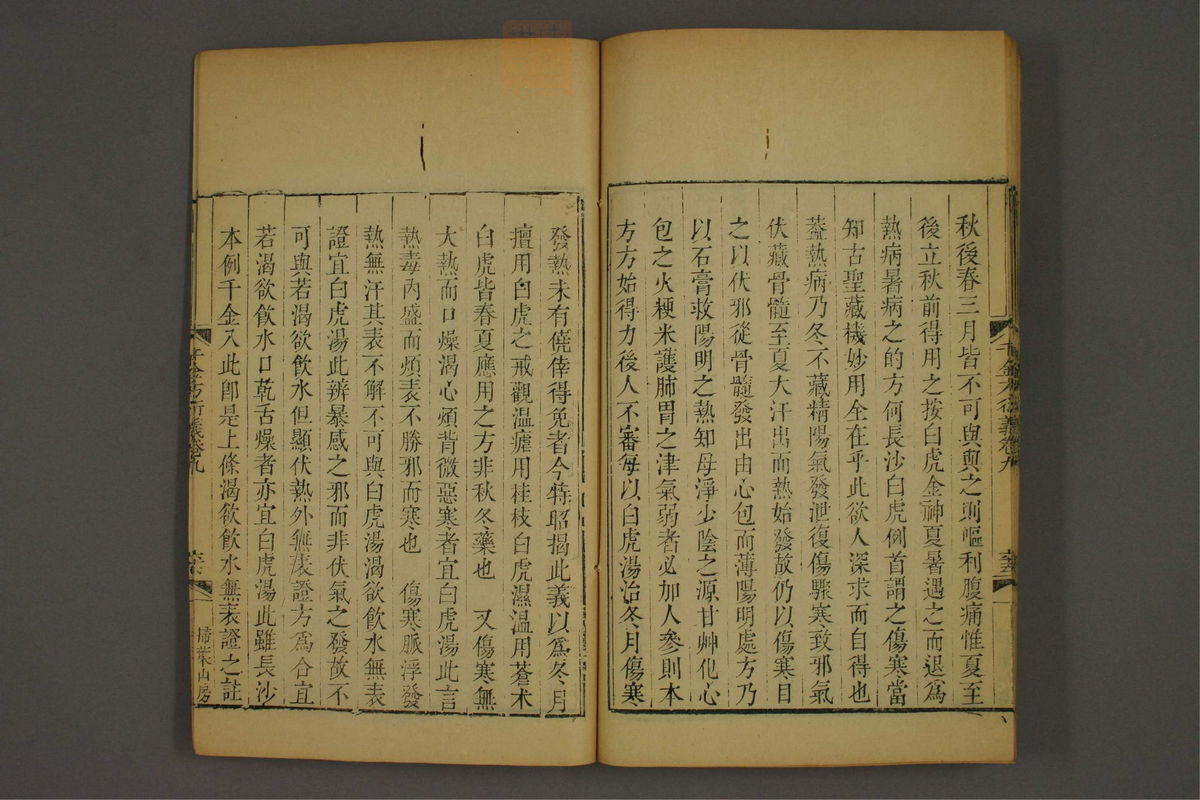 秋後春三月皆不可與與之則嘔利腹痛惟夏至
後立秋前得用之按白虎金神夏暑遇之而退爲
熱病暑病之的方何長沙白虎例首謂之傷寒當
知古聖藏機妙用全在乎此欲人深求而自得也
葢熱病乃冬不藏精陽氣發泄復傷驟寒致邪氣
伏藏骨髓至夏大汗出而熱始發故仍以傷寒目
之以伏邪從骨髓發出由心包而薄陽明處方乃
以石膏救陽明之熱知母淨少陰之源甘艸化心
包之火粳米護肺胃之津氣弱者必加人參則本
方方始得力後人不審每以白虎湯治冬月傷寒
千金方衍義卷九
發熱未有僥倖得免者今特昭揭此義以爲冬月
擅用白虎之戒觀溫瘧用桂枝白虎濕溫用蒼术
白虎皆春夏應用之方非秋冬藥也 又傷寒無
大熱而口燥渴心煩背微惡寒者宜白虎湯此言
熱毒內盛而煩表不勝邪而寒也 傷寒脈浮發
熱無汗其表不解不可與白虎湯渴欲飮水無表
證宜白虎湯此辨暴感之邪而非伏氣之發故不
可與若渴欲飮水但顯伏熱外無表證方爲合宜
若渴欲飮水口乾舌燥者亦宜白虎湯此雖長沙
本例千金入此卽是上條渴欲飮水無表證之註
千金方衍義卷九
掃葉山房